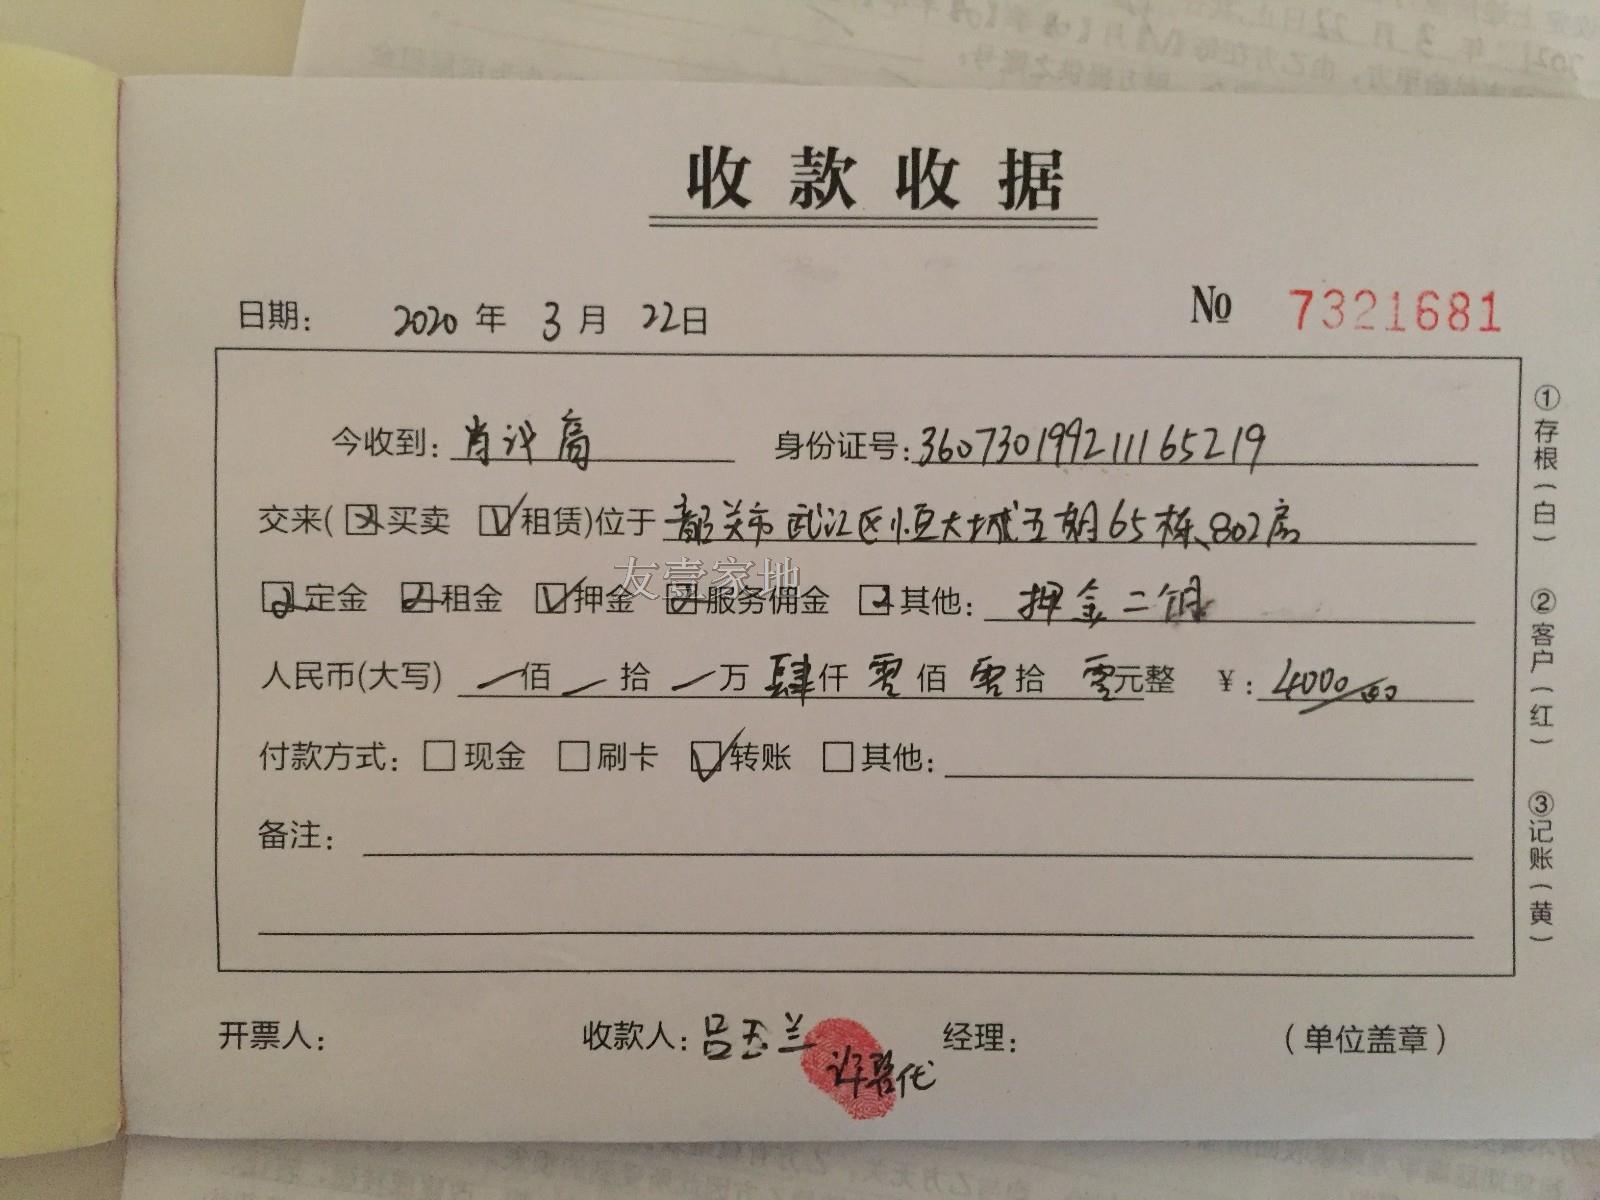 收款收据
日期: 2020年3月22日 № 7321681
今收到: 肖 高 身份证号: 360730199211165219
交来(☒买卖 ☑租赁)位于 韶关市武江区恒大城五期65栋、802房
友壹家地
定金 租金 ☑押金 服务佣金 其他: 押金二个月
人民币(大写) 一佰一拾一万肆仟零佰零拾零元整 ¥: 4000.00
付款方式: □现金 □刷卡 ☑转账 □其他:
备注:
开票人: 收款人: 吕玉兰 经理: (单位盖章)
许 代
①存根(白) ②客户(红) ③记账(黄)